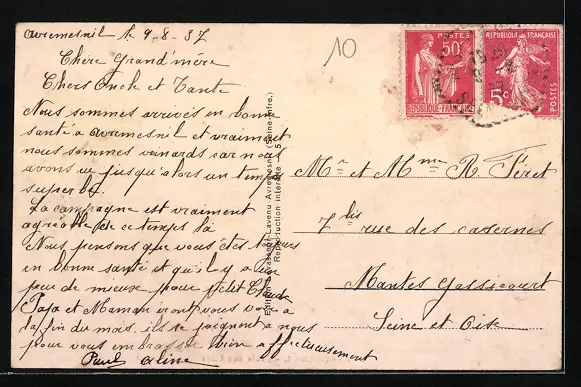 Avremesnil le 9-8-37
Chère Grand'mère
Chers Oncle et Tante
Nous sommes arrivés en bonne
santé a avremesnil et vraiment
nous sommes veinards car nous
avons eu jusqu'alors un temps
superbe.
La campagne est vraiment
agréable par ce temps là
Nous pensons que vous êtes toujours
en bonne santé et qu'il y a un
peu de mieux pour petit Claude
Papa et Maman iront vous voir a
la fin du mois, ils se joignent a nous
pour vous embrasser bien affectueusement
Paul Aline
10
Lavenu, Avremesnil (Seine-Infre.)
Reproduction interdite
POSTES
50c
RÉPUBLIQUE FRANÇAISE
RÉPUBLIQUE FRANÇAISE
5c
POSTES
Mr et Mme R. Féret
7 bis rue des casernes
Mantes Gassicourt
Seine et Oise